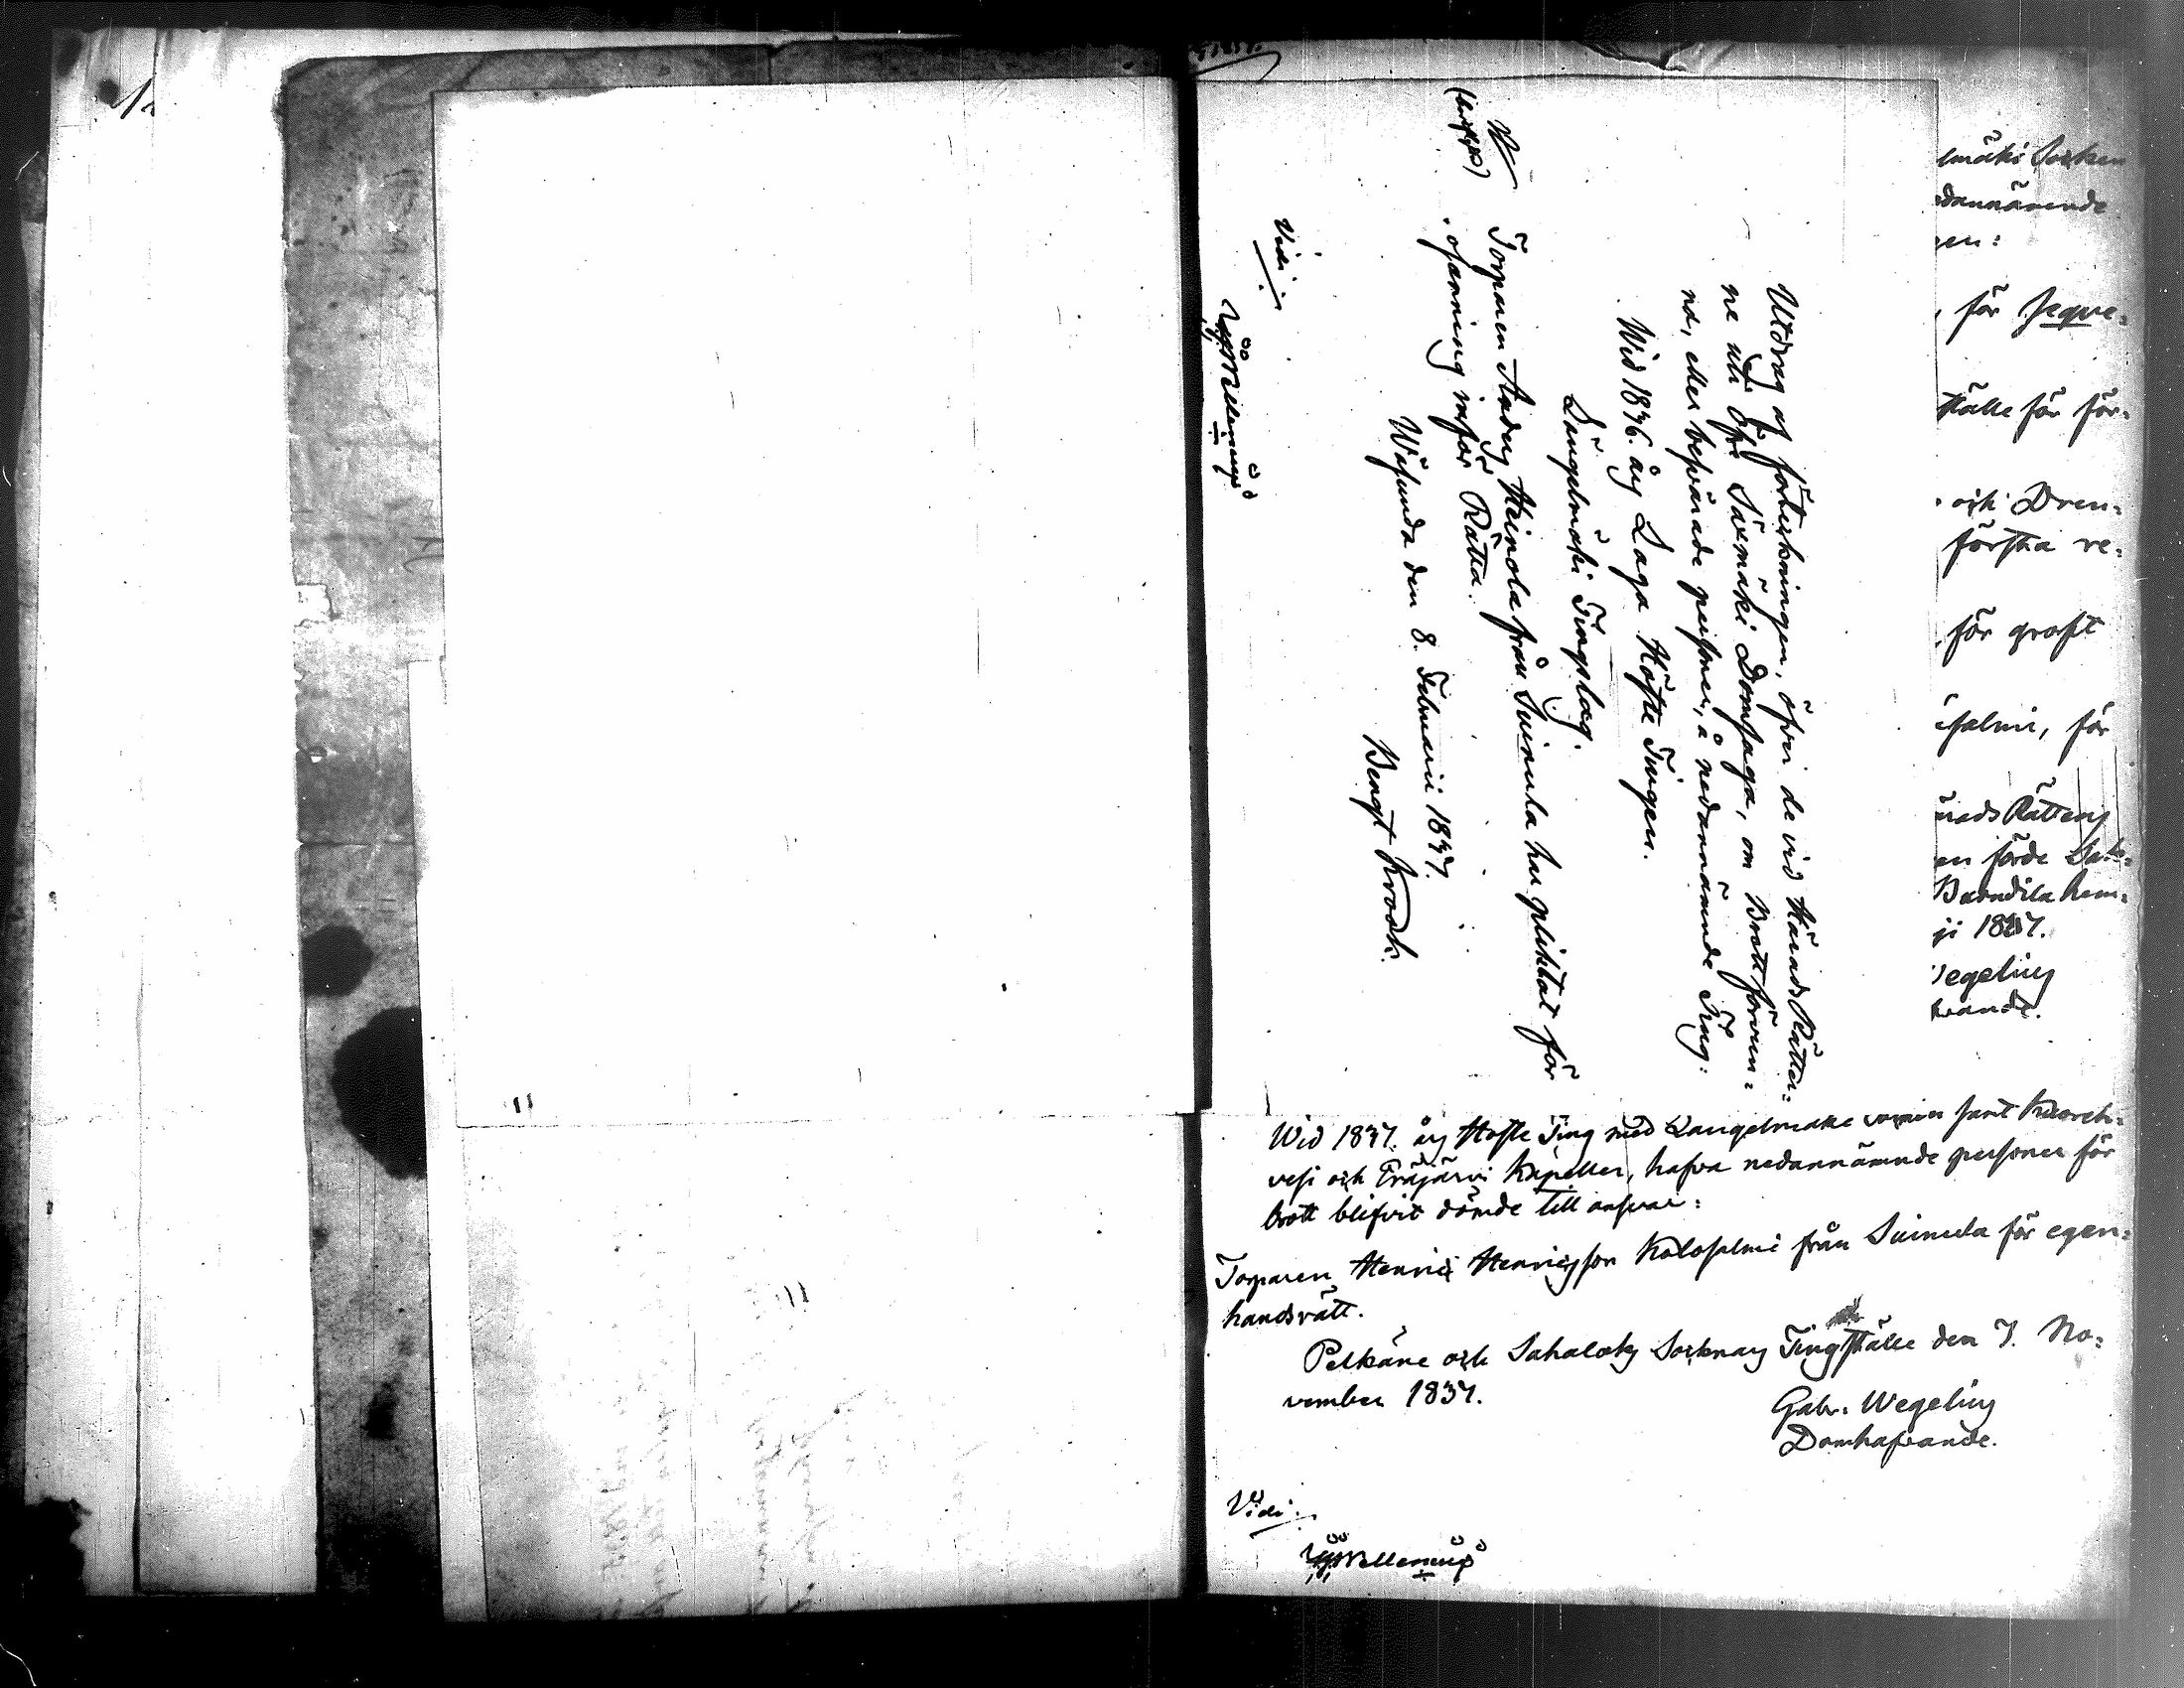 Utdrag af förteckningen, öfver de vid Härads Rätter=
ne uti Öfre Säxmäki Domsaga, om Brott förvun=
na, eller besvärade personer, å nedannämnde Ting:
Wid 1836. års Laga Höste Tingen.
Längelmäki Tingslag.
Torparen Anders Heinola från Suinula har pliktat för
osanning inför Rätta.
Wåhunda den 8. Februarii 1837.
Bengt Krook.
Vidi
lmäki Socken
edannämnde
gen:
, för
ställe för för=
och Dren=
första re=
för groft
salmi, för
rads Rättens
en förde Sak=
hem=
ji 1837.
Wegelius
hafvande.
Wid 1837. års Höste Ting med Längelmäki socken samt Kuoreh=
vesi och Eräjärvi Kapeller, hafva nedannämnde personer för
brott blifvit dömde till ansvar:
Torparen Henric Henricsson Kalosalmi från Suinula för egen=
handsrätt.
Pelkäne och Sahalaks Socknars Tingställe den 7. No=
vember 1837.
Gabr. Wegelius
Domhafvande.
Vidi